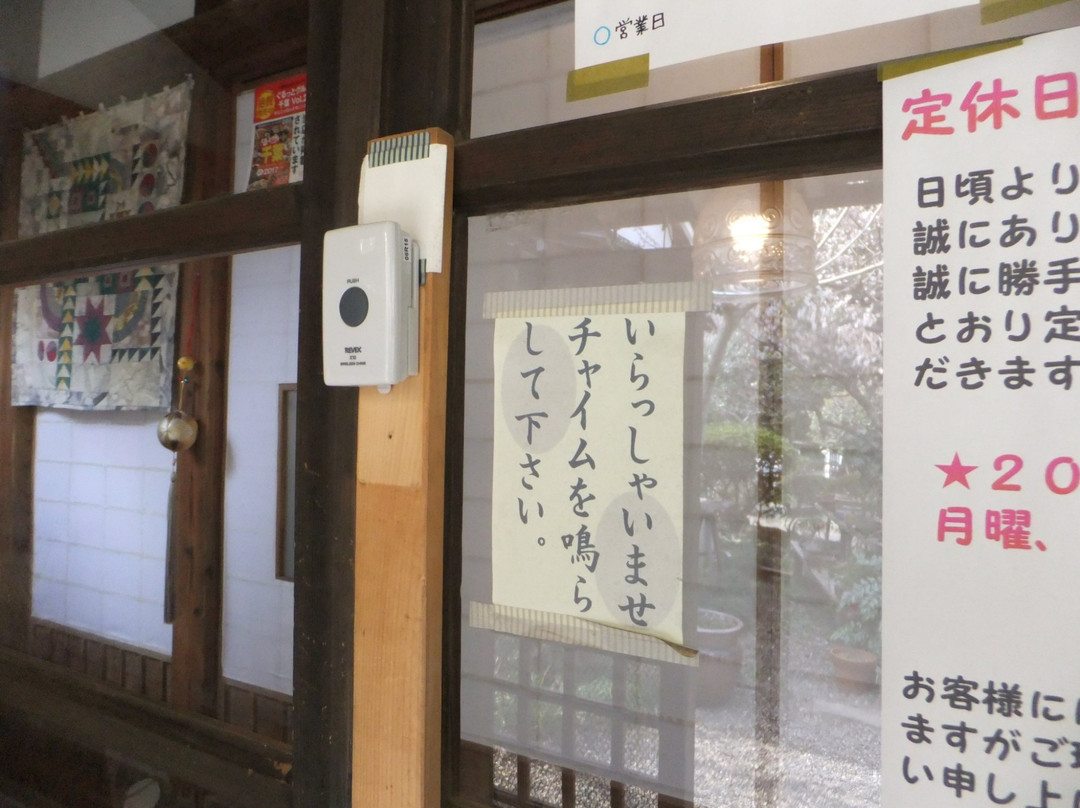 営業日
定休日
日頃より
誠にあり
誠に勝手
とおり定
だきます
★20
月曜、
お客様に
ますがご
い申し上
いらっしゃいませ
チャイムを鳴ら
して下さい。
PUSH
REVEX
ぐるっと
千葉 Vol.
されています
千葉
2017